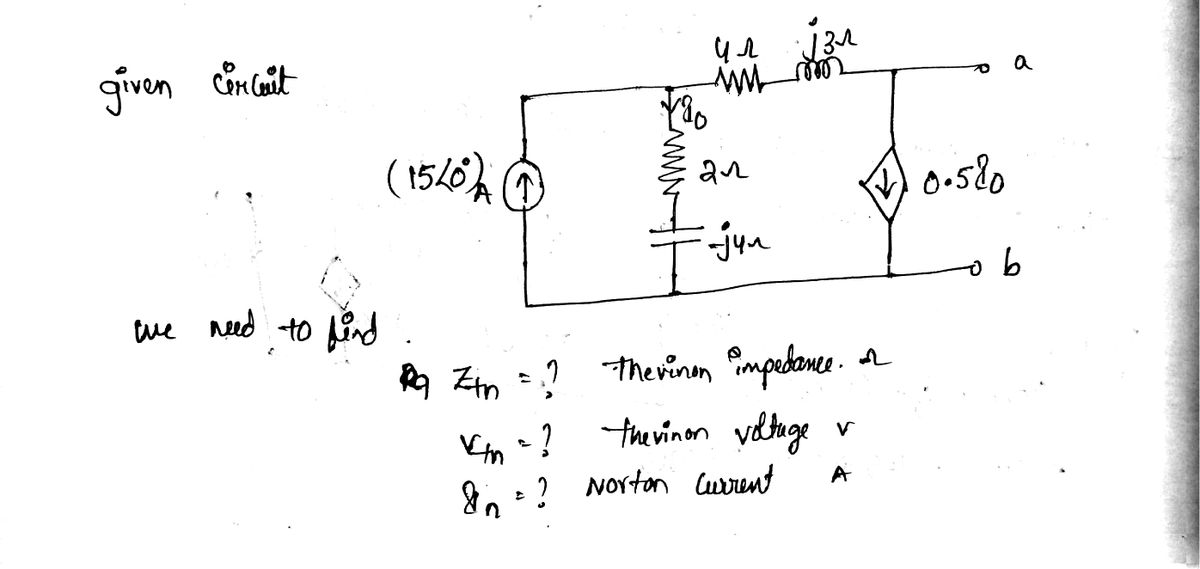 4Ω j3Ω
a
given circuit
I0
(15∠0°)A
2Ω
0.5I0
-j4Ω
b
we need to find.
Zth = ? Thevinon impedance. Ω
Vth = ? Thevinon voltage v
In = ? Norton Current A